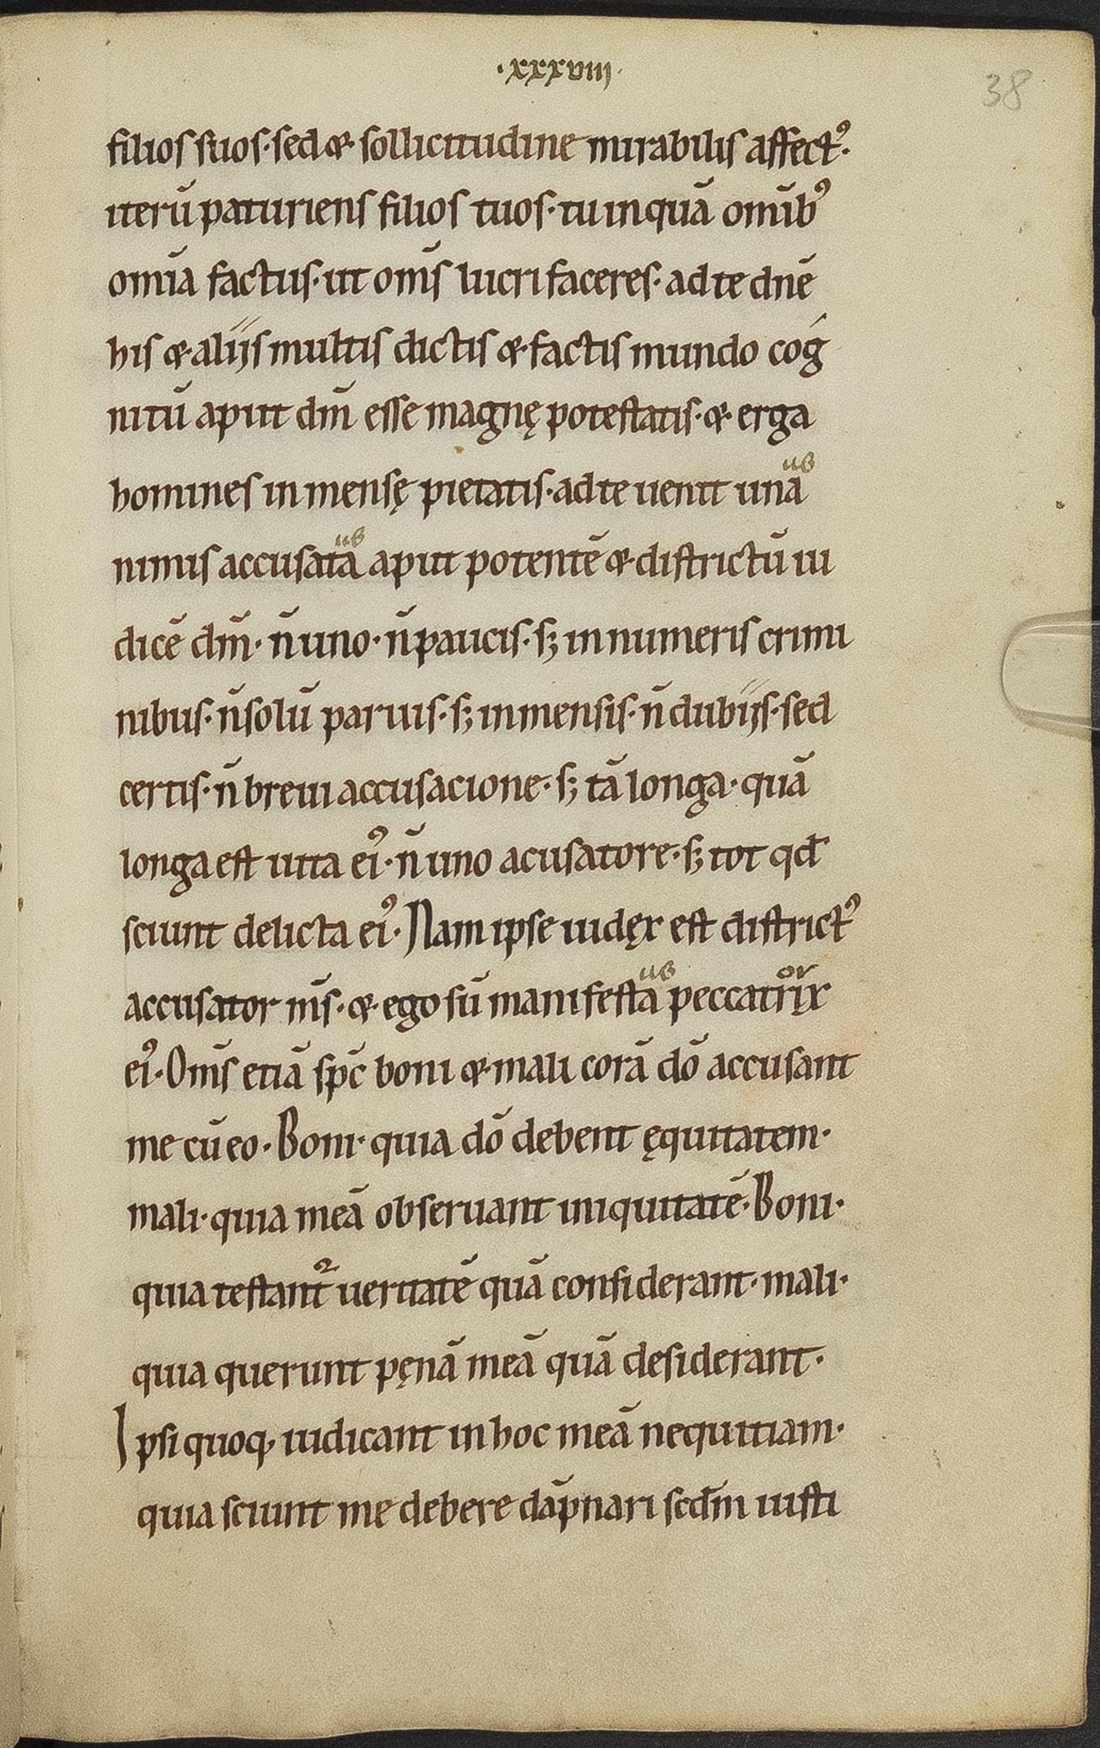 ·xxxviii·
38
filios suos·sed & sollicitudine mirabilis affectꝰ·
iterū paturiens filios tuos·tu inquā omībꝰ
omīa factus·ut om̄s lucri faceres·ad te dn̄e
his & alijs multis dictis & factis mundo cog
nitū aput dm̄ esse magnę potestatis·& erga
us
homines inmensę pietatis·ad te uenit unā
us
nimis accusatā aput potentē & districtū iu
dicē dm̄·n̄ uno·n̄ paucis·sꝫ innumeris crimi
nibus·n̄ solū paruis·sꝫ inmensis·n̄ dubijs·sed
certis·n̄ breui accusacione·sꝫ tā longa·quā
longa est uita eiꝰ·n̄ uno acusatore·sꝫ tot qđ
sciunt delicta eiꝰ·Nam ipse iudęx est districtꝰ
us or
accusator m̄s·& ego sū manifesta peccatrix
eiꝰ·Om̄s etiā sp̄c boni & mali corā dō accusant
me cū eo·Boni·quia dō debent ęquitatem·
mali·quia meā obseruant iniquitatē·Boni·
quia testant᷑ ueritatē quā considerant·mali·
quia querunt pęnā meā quā desiderant·
Ipsi quoqꝫ iudicant in hoc meā nequitiam·
quia sciunt me debere dāpnari scđm iusti